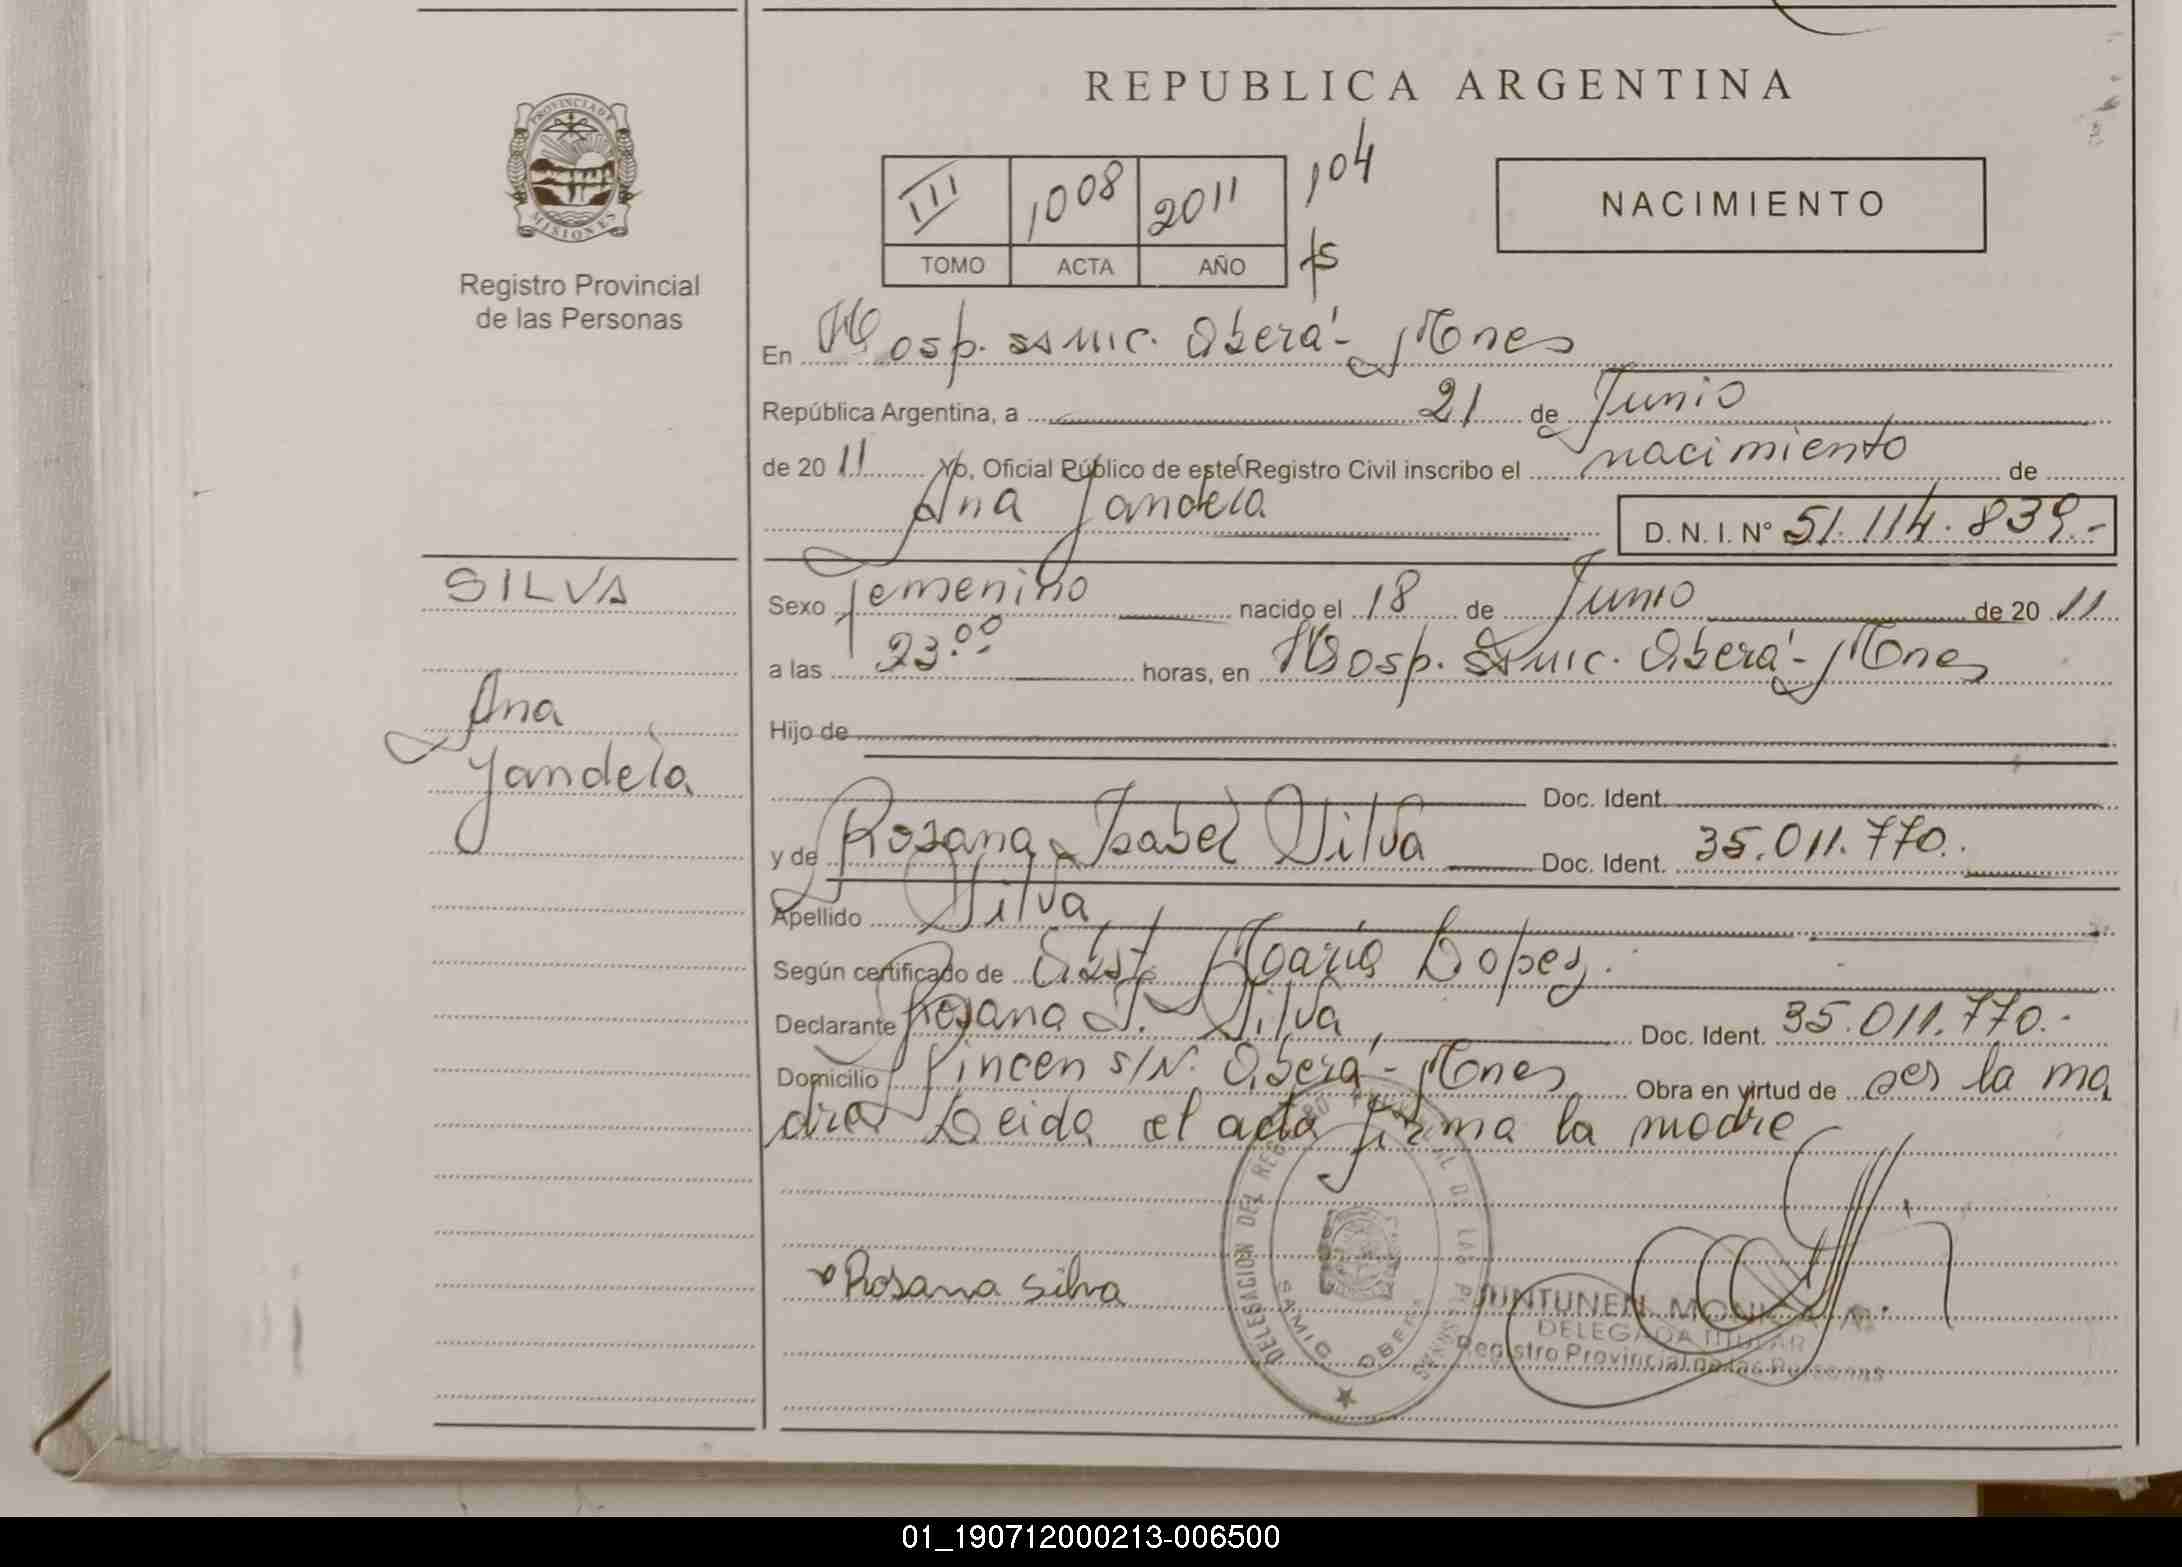 REPUBLICA ARGENTINA
PROVINCIA DE
MISIONES
Registro Provincial
de las Personas
III 1008 2011 104
TOMO ACTA AÑO fs
NACIMIENTO
En Hosp. Samic. Oberá - Mnes
República Argentina, a 21 de Junio
de 2011 Yo, Oficial Público de este Registro Civil inscribo el nacimiento de
Ana Yandela
D. N. I. N° 51.114.839.-
SILVA
Ana
Yandela
Sexo femenino nacido el 18 de Junio de 2011
a las 23:00 horas, en Hosp. Samic. Oberá - Mnes
Hijo de
Doc. Ident.
y de Rosana Isabel Silva Doc. Ident. 35.011.770.
Apellido Silva
Según certificado de Obst. María Lopez.
Declarante Rosana I. Silva, Doc. Ident. 35.011.770.-
Domicilio Pincen S/N. Oberá - Mnes Obra en virtud de ser la ma
dre Leida el acta firma la madre
Rosana Silva
DELEGACION DEL REGISTRO PROVINCIAL DE LAS PERSONAS
SAMIC OBERA
JUNTUNEN, MONICA A.
DELEGADA TITULAR
Registro Provincial de las Personas
01_190712000213-006500